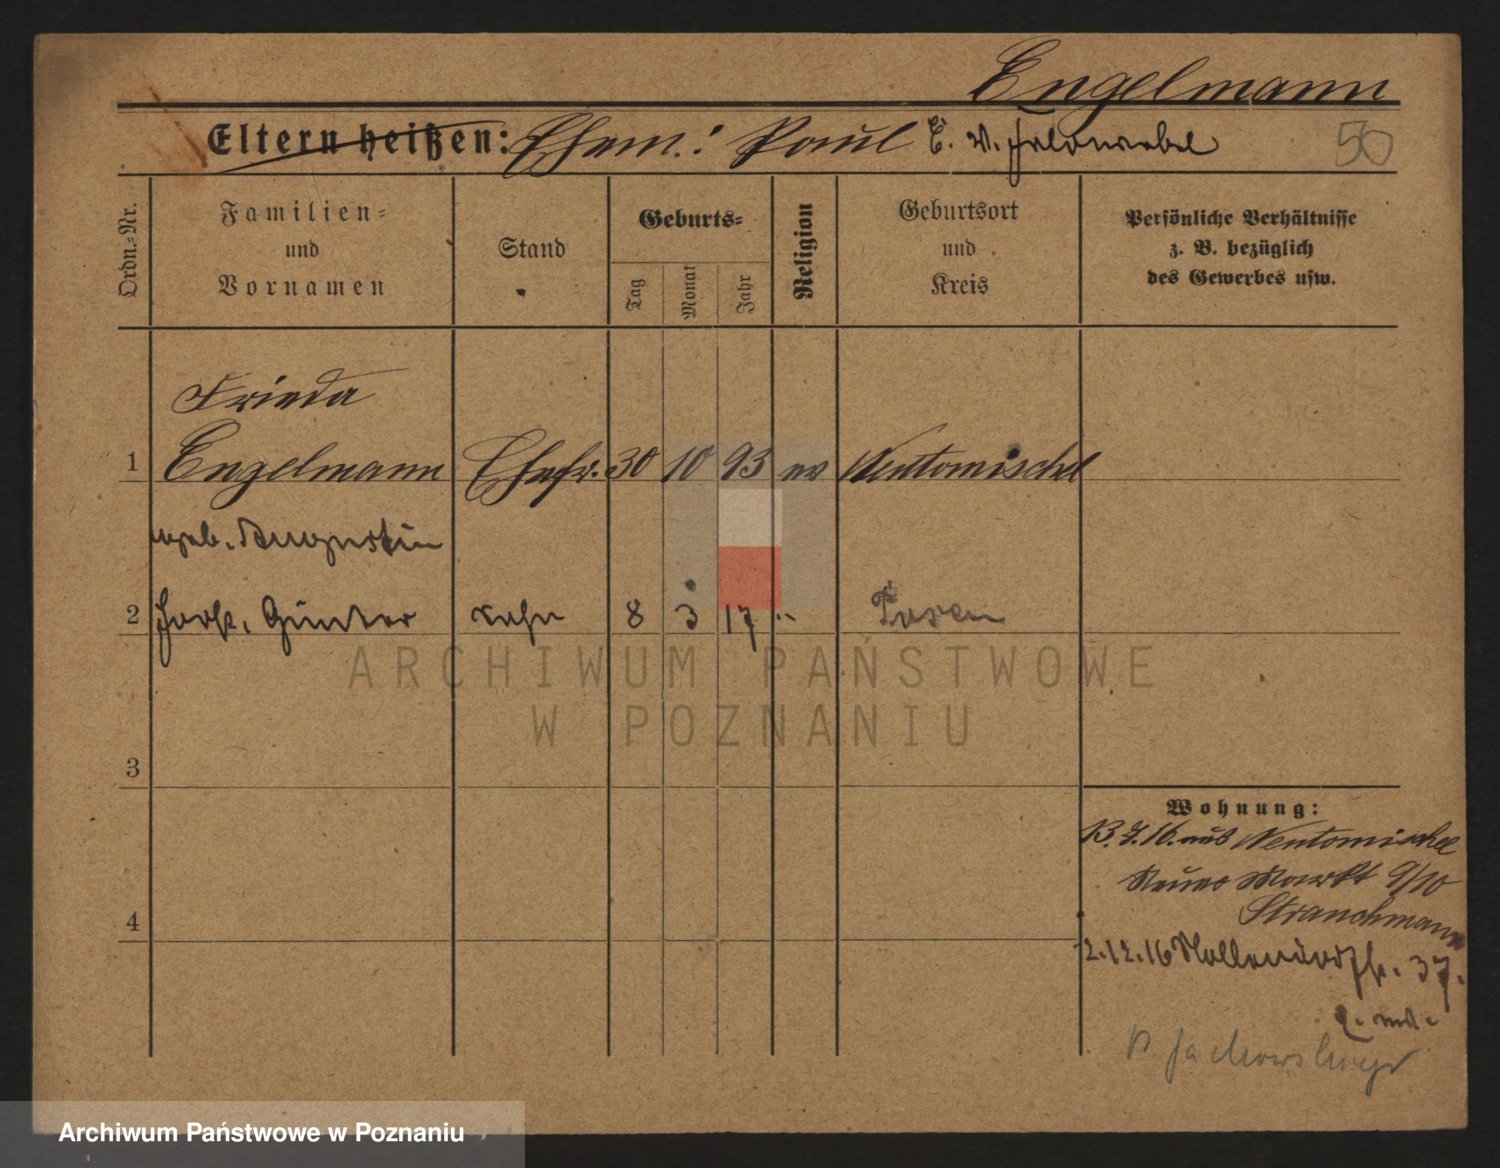 Engelmann
Eltern heißen: Ehem.: Paul E. V. Feldwebel
50
Ordn.-Nr.
Familien-
und
Vornamen
Stand
Geburts-
Tag
Monat
Jahr
Religion
Geburtsort
und
Kreis
Persönliche Verhältnisse
z. B. bezüglich
des Gewerbes usw.
Frieda
1 Engelmann Ehefr. 30 10 93 ev Neutomischel
geb. Augustin
2 Horst, Günter Sohn 8 3 17 " Posen
3
4
Wohnung:
13.7.16. aus Neutomischel
Neuer Markt 9/10
Strauchmann
2.12.16 Hollendorfstr. 37.
ARCHIWUM PAŃSTWOWE
W POZNANIU
Archiwum Państwowe w Poznaniu